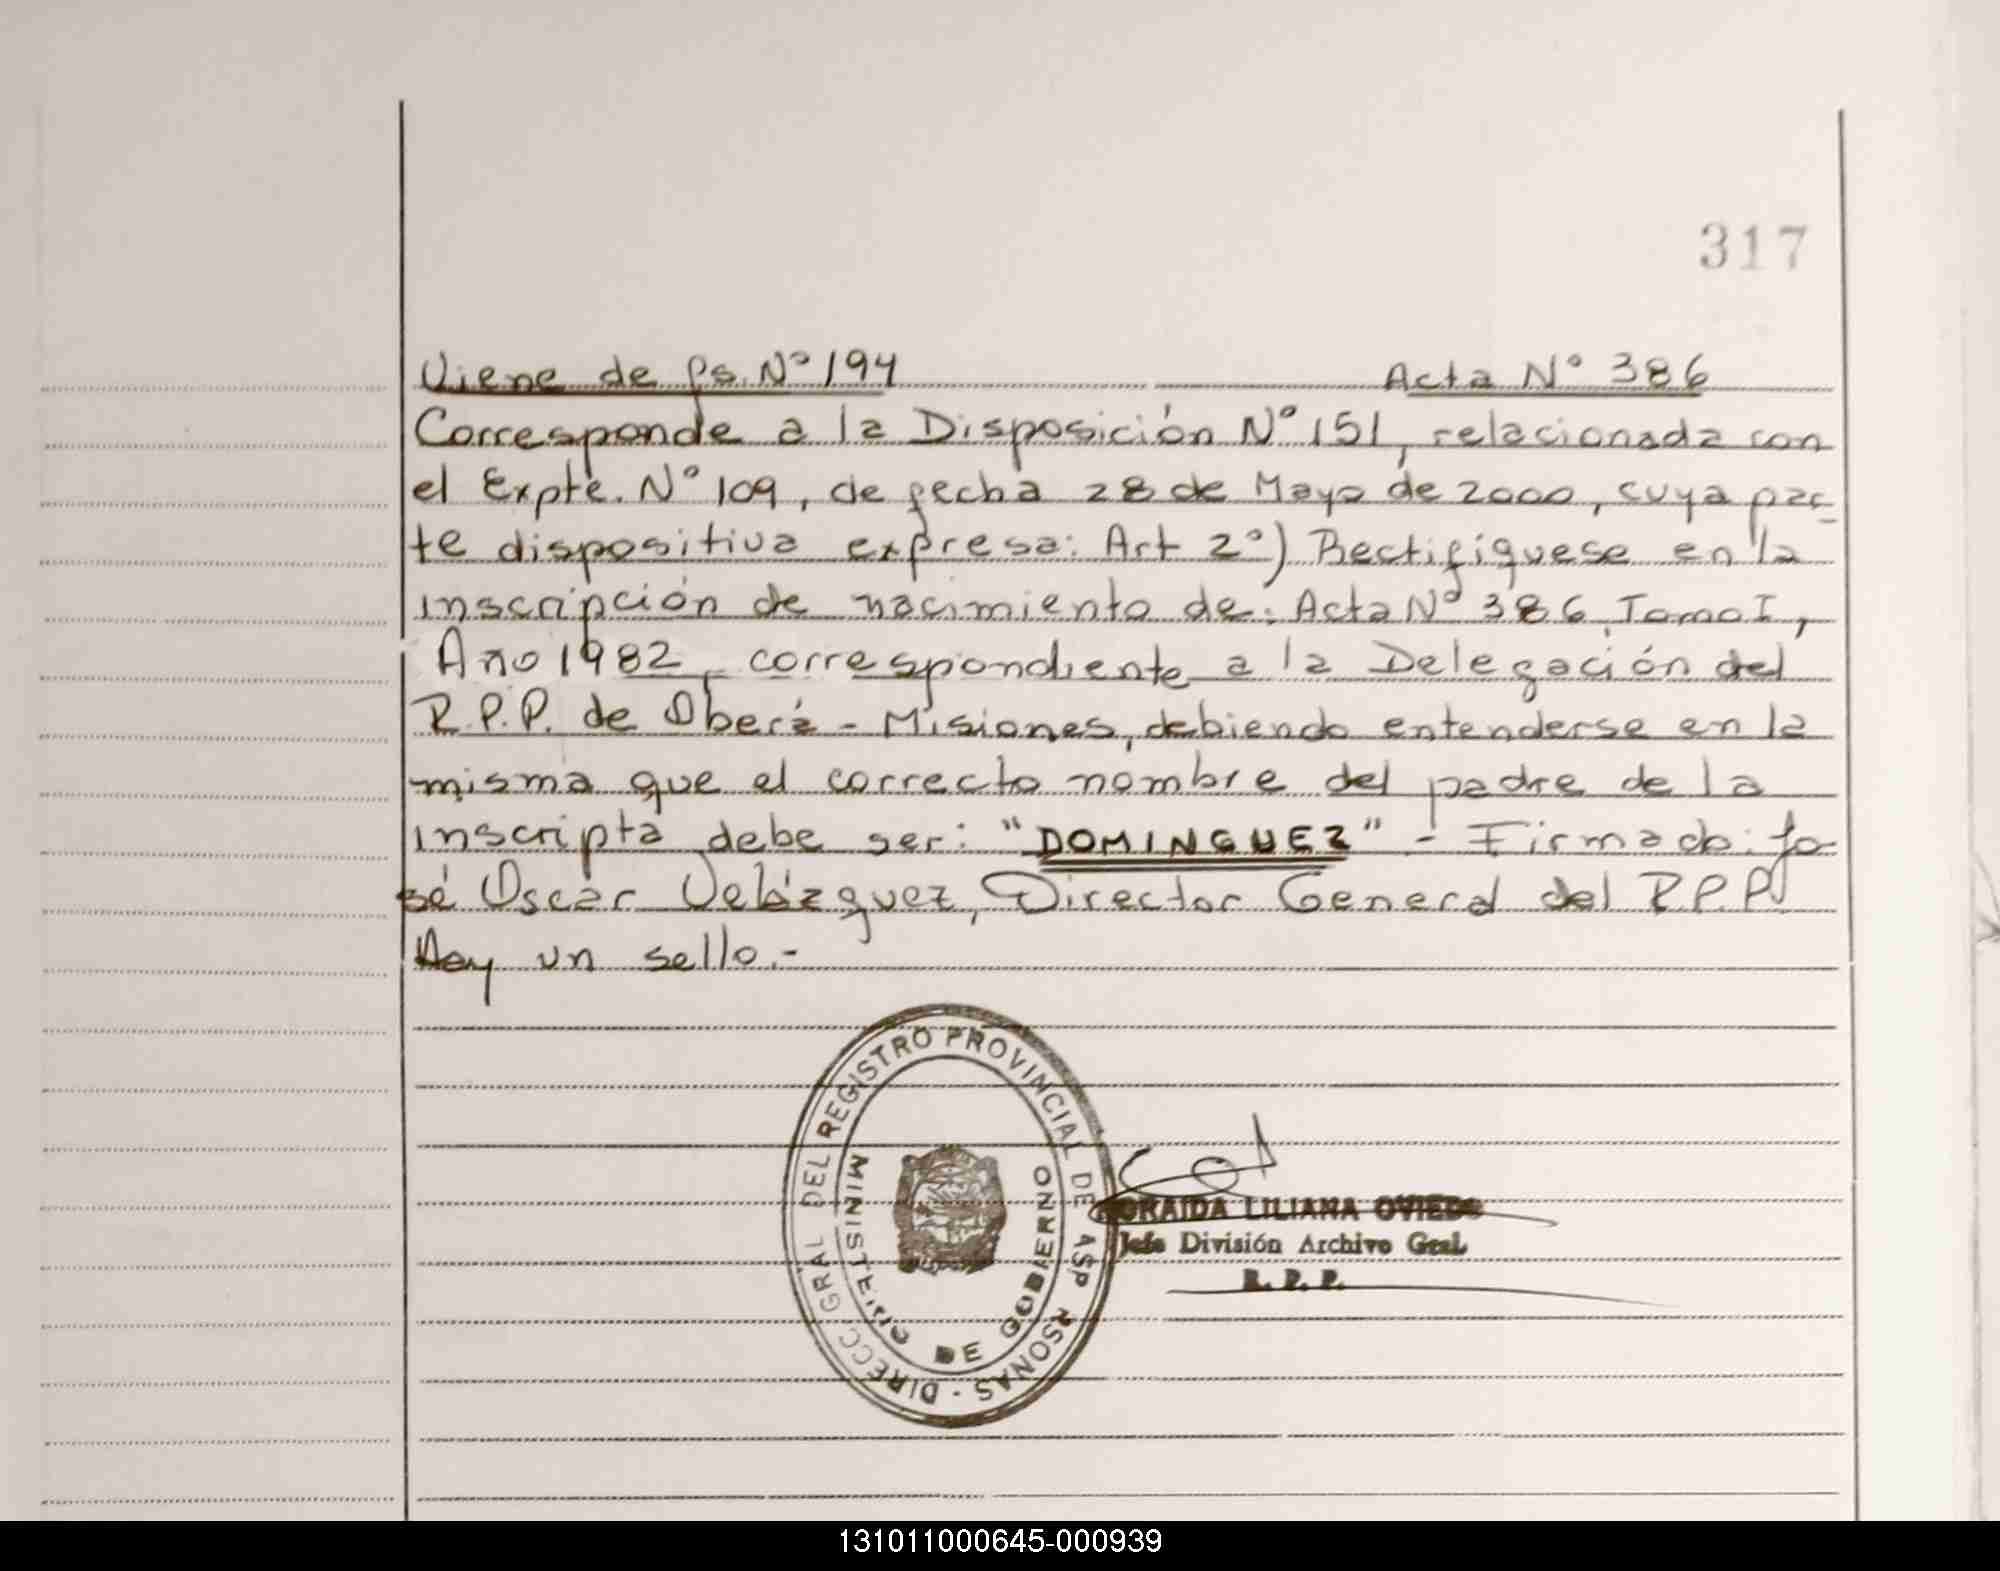 317
Viene de fs. Nº 194 Acta Nº 386
Corresponde a la Disposición Nº 151, relacionada con
el Expte. Nº 109, de fecha 28 de Mayo de 2000, cuya par_
te dispositiva expresa: Art 2º) Rectifíquese en la
inscripción de nacimiento de: Acta Nº 386, Tomo I,
Año 1982, correspondiente a la Delegación del
R.P.P. de Oberá - Misiones, debiendo entenderse en la
misma que el correcto nombre del padre de la
inscripta debe ser: "DOMINGUEZ" - Firmado: Jo
sé Oscar Velázquez, Director General del R.P.P
Hay un sello.-
DIRECC. GRAL DEL REGISTRO PROVINCIAL DE LAS PERSONAS
MINISTERIO DE GOBIERNO
LILIANA OVIEDO
Jefe División Archivo Gral.
R. P. P.
131011000645-000939